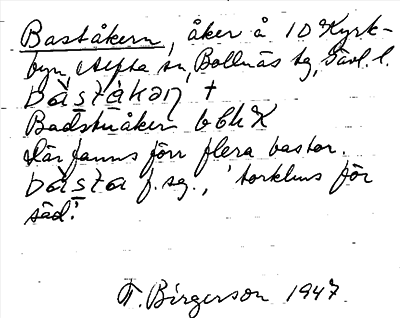 Baståkern, åker å 1 D Kyrk-
byn, Alfta sn, Bollnäs tg, Gävl. l.
bàstákaη +
Badstuåker b Ch K
Där fanns förr flera bastor.
bàsta f. sg., 'torkhus för
säd'.
T. Birgerson 1947.